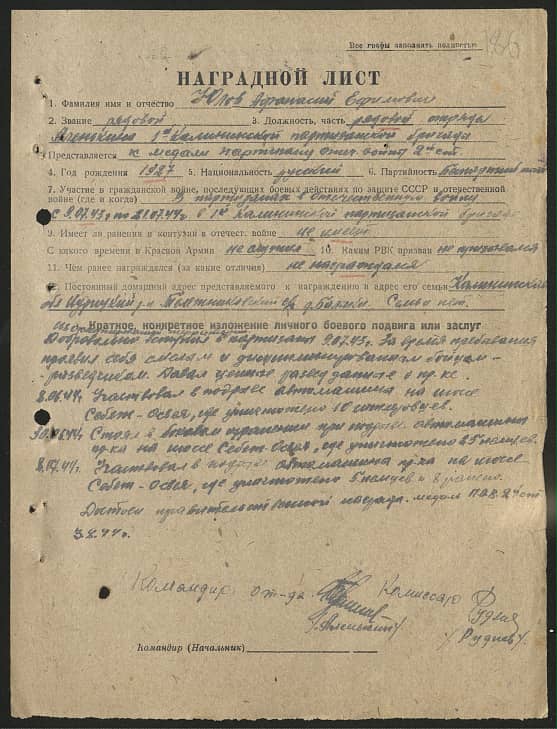 Все графы заполнить полностью
НАГРАДНОЙ ЛИСТ
1. Фамилия имя и отчество Юлов Афанасий Ефимович
2. Звание рядовой 3. Должность, часть рядовой отряда
1й Калининской партизанской бригады
Представляется к медали партизану отеч. войны 2й ст.
4. Год рождения 1927 5. Национальность русский 6. Партийность беспартийный
7. Участие в гражданской войне, последующих боевых действиях по защите СССР и отечественной
войне (где и когда) В партизанах в Отечественную войну
с 9.07.43г по 21.07.44г в 1й Калининской партизанской бригаде
9. Имеет ли ранения и контузии в отечест. войне не имеет
С какого времени в Красной Армии не служил 10. Каким РВК призван не призывался
11. Чем ранее награждался (за какие отличия) не награждался
12. Постоянный домашний адрес представляемого к награждению и адрес его семьи Калининская
обл. р-н с/с д. Семьи нет
Краткое, конкретное изложение личного боевого подвига или заслуг
Добровольно вступил в партизаны 9.07.43г. За время пребывания
проявил себя смелым и дисциплинированным бойцом-
разведчиком. Давал ценные разведданные о пр-ке.
8.06.44г. Участвовал в подрыве автомашины на шоссе
Себеж-Освея, где уничтожено 10
30.06.44г. Стоял в боковом охранении при подрыве автомашины
пр-ка на шоссе Себеж-Освея, где уничтожено 5 немцев.
8.07.44г. Участвовал в подрыве автомашины пр-ка на шоссе
Себеж-Освея, где уничтожено 5 немцев и 8 ранено.
Достоин правительственной награды. медаль П.О.В. 2й ст.
3.8.44г.
Командир от-да Комиссар
/Руднев/
Командир (Начальник)